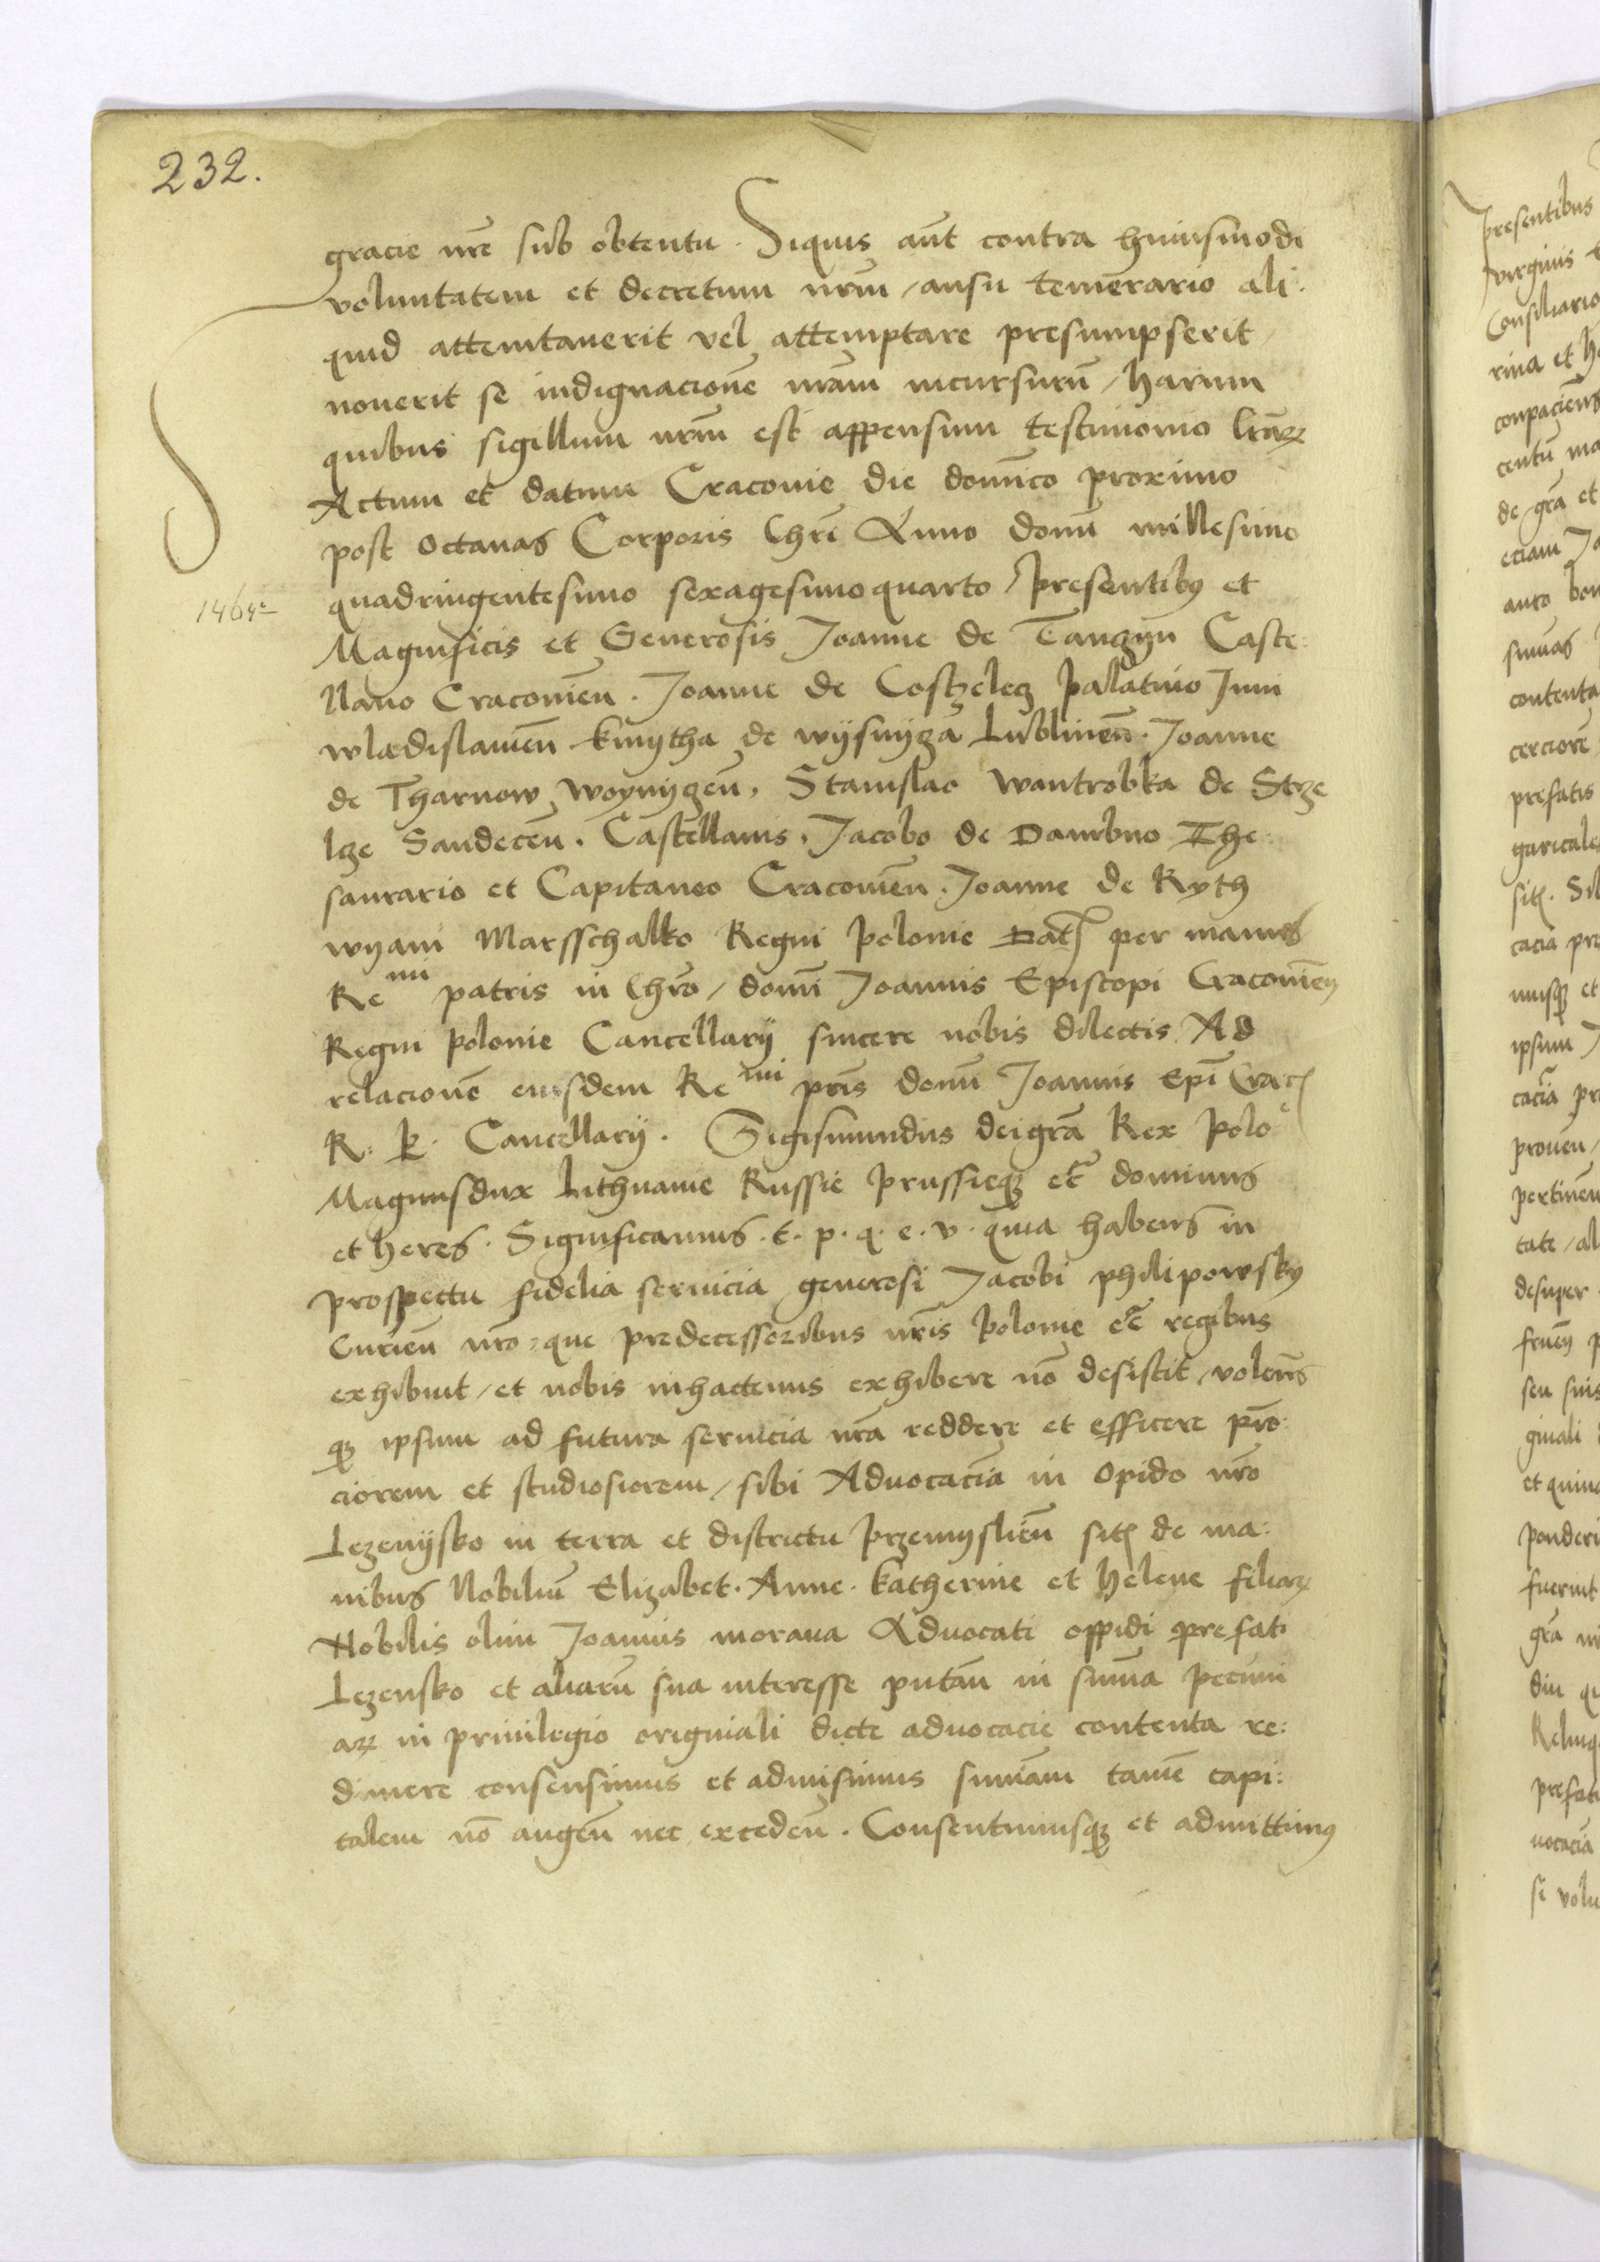 232.
gracie nr̄e sub obtentu. Siquis aūt contra huiusmodi
voluntatem et decretum nr̄m / ausu temerario ali:
quid attemtaverit vel attemptare presumpserit /
noverit se indignacionē nr̄am incursurū / harum
quibus sigillum nr̄m est appensum testimonio lr̄arꝝ
Actum et datum Cracovie die domīco proximo
post octavas Corporis Chr̄i Anno domī millesimo
quadringentesimo sexagesimoquarto / presentibꝰ et
1464ᵗᵒ
Magnificis et Generosis Joanne de Tanczyn Caste:
llano Cracovieñ. Joanne de Costzelecz pallatino Juni
wladislavieñ kmytha de wysnycza Lublineñ. Joanne
de Tharnow woyniczeñ, Stanislao wantrobka de Strze
lcze Sandeceñ. Castellanis, Jacobo de Dambno The
saurario et Capitaneo Cracovieñ. Joanne de Ryth
wyani Marsschalko Regni polonie Dat per manus
Reᵐⁱ patris in Chr̄o / domī Joannis Episcopi Cracovieñ
Regni polonie Cancellarij sincere nobis dilectis Ad
relacionē eiusdem Reᵐⁱ pr̄is domī Joannis Ep̄i Crac̄
R. P. Cancellarij. Sigismundus deigr̄a Rex polo
Magnusdux Lithuanie Russie prussieqꝫ etc̄ dominus
et heres. Significamus. t. p. q. e. v. quia habens in
prospectu fidelia servicia generosi Jacobi philipowsky
Curieñ nr̄o, que predecessoribus nr̄is polonie etc̄ regibus
exhibuit / et nobis inhactenus exhibere nō desistit / volens
qꝫ ipsum ad futura servicia nr̄a reddere et efficere pro:
ciorem et studiosiorem / sibi Advocaciā in opido nr̄o
Lezenijsko in terra et districtu przemyslieñ sit de ma:
nibus Nobiliū Elizabet. Anne. Katherine et helene filiarꝝ
Nobilis olim Joannis morava Advocati oppidi prefati
Lezensko et aliarū sua interesse putañ in sum̄a pecuni
arꝝ in privilegio originali dicte advocacie contenta re:
dimere consensimus et admisimus summam tamē capi:
talem nō augeñ nec excedeñ. Consentimusqꝫ et admittimꝰ
presentibus
virginis
Consiliario
rina et he
centū ma
de gr̄a et
eciam
auro bon
contenta
cerciorē
prefatis
ipsum
pertineñ
desuper
et quinq
ponderi
fuerint
prefati
si volu